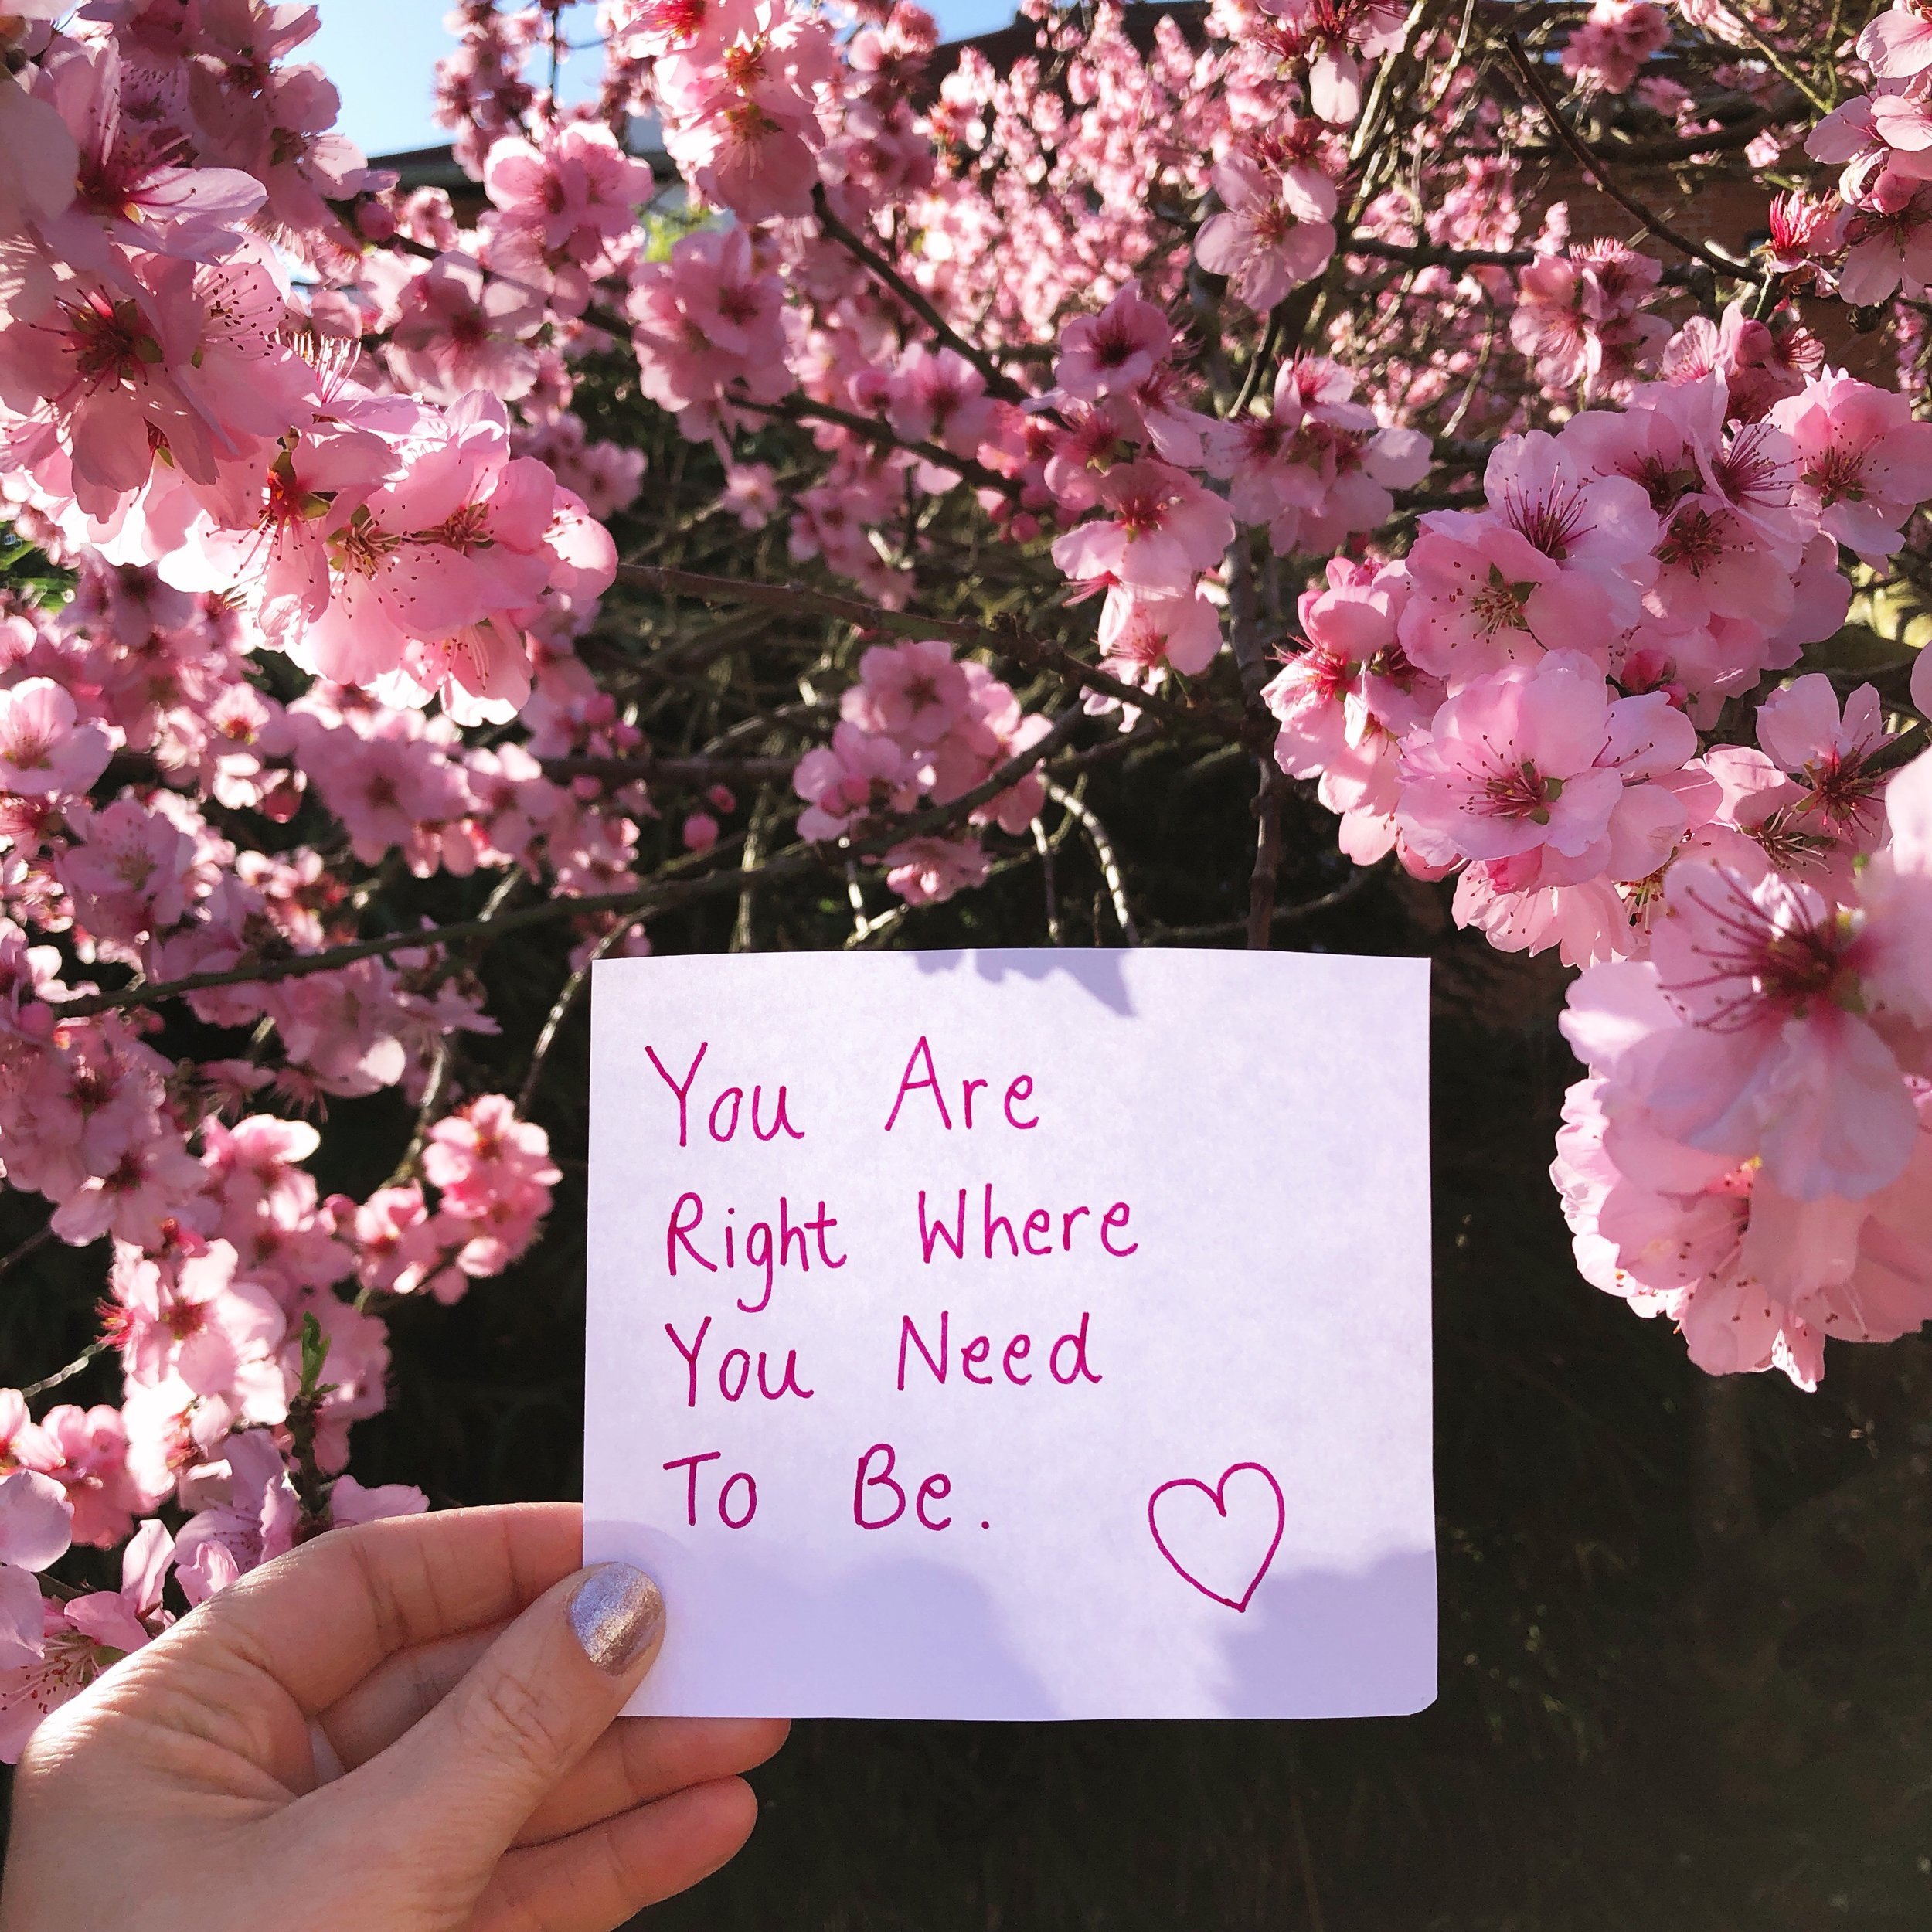 You Are
Right Where
You Need
To Be.